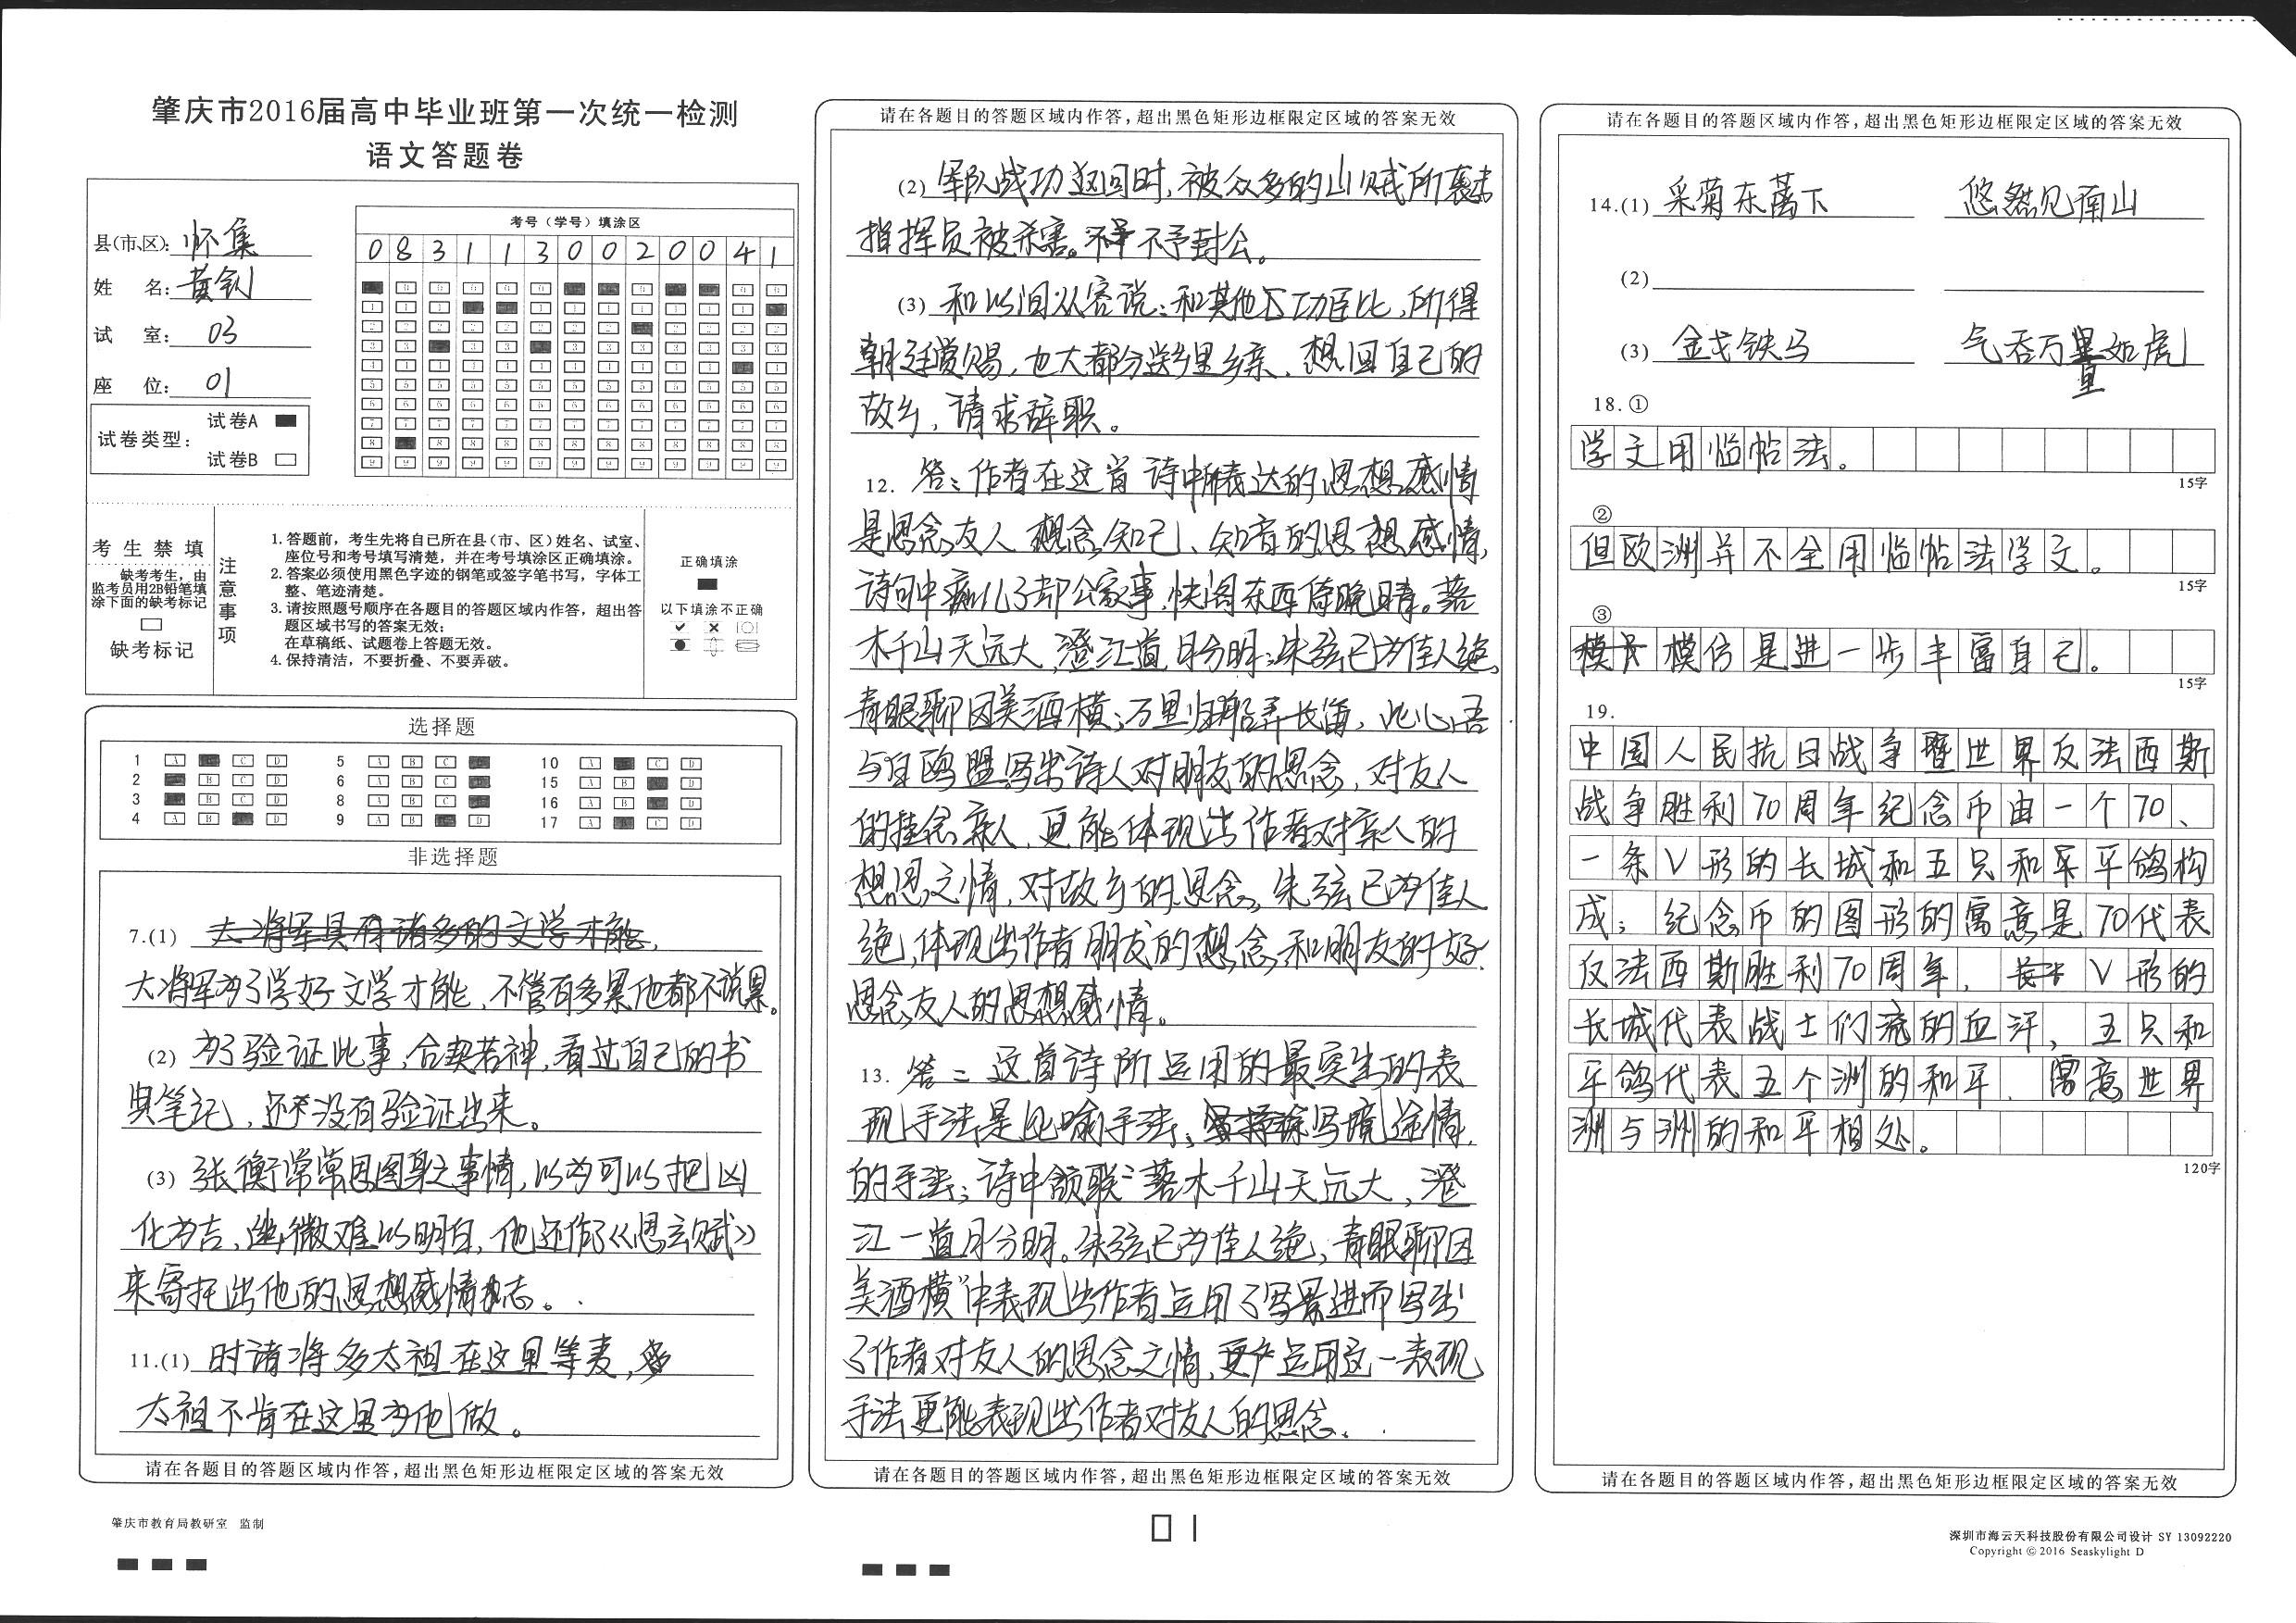 肇庆市2016届高中毕业班第一次统一检测
语文答题卷
县(市、区): 怀集
姓 名: 黄钊
试 室: 03
座 位: 01
试卷类型:
试卷A
试卷B
考号(学号)填涂区
0 8 3 1 1 3 0 0 2 0 0 4 1
考生禁填
缺考考生,由
监考员用2B铅笔填
涂下面的缺考标记
缺考标记
注意事项
1. 答题前,考生先将自已所在县(市、区)姓名、试室、
座位号和考号填写清楚,并在考号填涂区正确填涂。
2. 答案必须使用黑色字迹的钢笔或签字笔书写,字体工
整、笔迹清楚。
3. 请按照题号顺序在各题目的答题区域内作答,超出答
题区域书写的答案无效;
在草稿纸、试题卷上答题无效。
4. 保持清洁,不要折叠、不要弄破。
正确填涂
以下填涂不正确
选择题
1 A B C D 5 A B C D 10 A B C D
2 A B C D 6 A B C D 15 A B C D
3 A B C D 8 A B C D 16 A B C D
4 A B C D 9 A B C D 17 A B C D
非选择题
7.(1) 大将军具有诸多的文学才能,
大将军为了学好文学才能,不管有多累他都不说累。
(2) 为了验证此事,合契若神,看过自己的书
典笔记,还没有验证出来。
(3) 张衡常常思图身之事情,以为可以把凶
化为吉、幽微难以明白,他还作了《思玄赋》
来寄托出他的思想感情和志。
11.(1) 时诸将多太祖在这里等麦,
太祖不肯在这里为他做。
请在各题目的答题区域内作答,超出黑色矩形边框限定区域的答案无效
请在各题目的答题区域内作答,超出黑色矩形边框限定区域的答案无效
(2) 军队战功返回时,被众多的山贼所袭击
指挥员被杀害。不予封公。
(3) 和以间从容说:和其他功臣比,所得
朝廷赏赐,也大都分送乡里乡亲,想回自己的
故乡,请求辞职。
12. 答:作者在这首诗中所表达的思想感情
是思念友人 想念知己、知音的思想感情,
诗句中痴儿了却公家事,快阁东西倚晚晴。落
木千山天远大,澄江道月分明;朱弦已为佳人绝,
青眼聊因美酒横;万里归船弄长笛,此心吾
与白鸥盟写出诗人对朋友的思念,对友人
的挂念亲人,更能体现出作者对亲人的
想思之情,对故乡的思念。朱弦已为佳人
绝,体现出作者朋友的想念和朋友的好
思念友人的思想感情。
13. 答:这首诗所运用的最突出的表
现手法是比喻手法;写境逢情
的手法;诗中颔联:落木千山天远大,澄
江一道月分明。朱弦已为佳人绝,青眼聊因
美酒横"中表现出作者运用了写景进而写出
了作者对友人的思念之情,运用这一表现
手法更能表现出作者对友人的思念。
请在各题目的答题区域内作答,超出黑色矩形边框限定区域的答案无效
请在各题目的答题区域内作答,超出黑色矩形边框限定区域的答案无效
14.(1) 采菊东蓠下 悠然见南山
(2)
(3) 金戈铁马 气吞万里如虎
18.①
学文用临帖法。
15字
②
但欧洲并不全用临帖法学文。
15字
③
模仿是进一步丰富自己。
15字
19.
中国人民抗日战争暨世界反法西斯
战争胜利70周年纪念币由一个70、
一条V形的长城和五只和平鸽构
成;纪念币的图形的寓意是70代表
反法西斯胜利70周年,V形的
长城代表战士们流的血汗,五只和
平鸽代表五个洲的和平,寓意世界
洲与洲的和平相处。
120字
请在各题目的答题区域内作答,超出黑色矩形边框限定区域的答案无效
肇庆市教育局教研室 监制
01
深圳市海云天科技股份有限公司设计 SY 13092220
Copyright ©2016 Seaskylight D